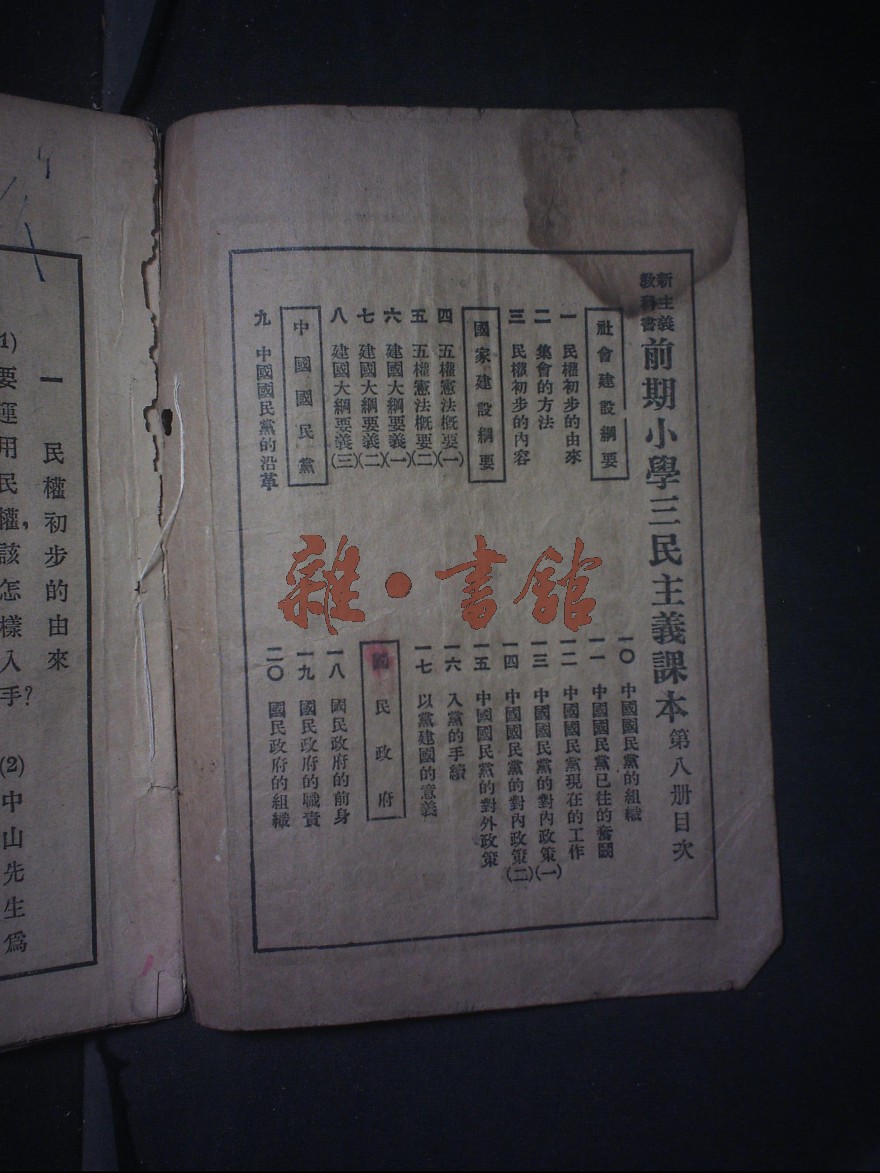 新主義
教科書
前期小學三民主義課本 第八册目次
社會建設綱要
一 民權初步的由來
二 集會的方法
三 民權初步的內容
國家建設綱要
四 五權憲法概要(一)
五 五權憲法概要(二)
六 建國大綱要義(一)
七 建國大綱要義(二)
八 建國大綱要義(三)
中國國民黨
九 中國國民黨的沿革
一〇 中國國民黨的組織
一一 中國國民黨已往的奮鬭
一二 中國國民黨現在的工作
一三 中國國民黨的對內政策(一)
一四 中國國民黨的對內政策(二)
一五 中國國民黨的對外政策
一六 入黨的手續
一七 以黨建國的意義
國民政府
一八 國民政府的前身
一九 國民政府的職責
二〇 國民政府的組織
雜·書館
一 民權初步的由來
(1)要運用民權,該怎樣入手? (2)中山先生爲